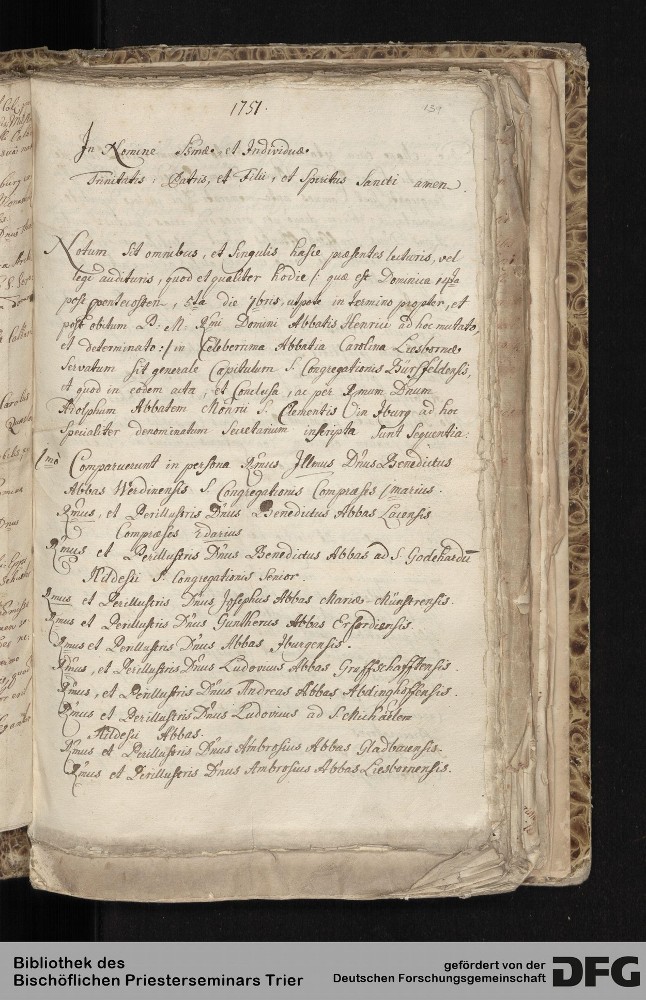 1751.
139
In Nomine Ssmæ et Individuæ
Trinitatis, Patris, et Filii, et Spiritus Sancti amen.
Notum sit omnibus, et singulis hasce præsentes lecturis, vel
legi audituris, quod et qualiter hodie /: quæ est Dominica 14ta
post pentecosten, 5ta die 7bris, utpote in termino propter, et
post obitum B. M. Rmi Domini Abbatis Henrici ad hoc mutato,
et determinato :/ in Celeberrima Abbatia Carolina Liesbornæ
Servatum sit generale Capitulum S. Congregationis Bursfeldensis,
et quod in eodem acta, et Conclusa, ac per Rmum Dnum
Adolphum Abbatem Monrii S. Clementis in Iburg ad hoc
specialiter denominatum Secretarium inscripta sunt sequentia:
1mò Comparuerunt in persona Rmus, Illmus Dnus Benedictus
Abbas Werdinensis S. Congregationis Compræses 1marius.
Rmus, et Perillustris Dnus Benedictus Abbas Lacensis
Compræses 2darius
Rmus et Perillustris Dnus Benedictus Abbas ad S. Godehardū
Hildesii S. Congregationis Senior.
Rmus et Perillustris Dnus Josephus Abbas Mariæ-Münstrensis.
Rmus et Perillustris Dnus Guntherus Abbas Erfordiensis.
Rmus et Perillustris Dnus Abbas Iburgensis.
Rmus, et Perillustris Dnus Ludovicus Abbas Graffschafftensis
Rmus, et Perillustris Dnus Andreas Abbas Abdinghoffensis.
Rmus et Perillustris Dnus Ludovicus ad S. Michaëlem
Hildesii Abbas.
Rmus et Perillustris Dnus Ambrosius Abbas Gladbacensis.
Rmus et Perillustris Dnus Ambrosius Abbas Liesbornensis.
Bibliothek des
Bischöflichen Priesterseminars Trier
gefördert von der
Deutschen Forschungsgemeinschaft
DFG